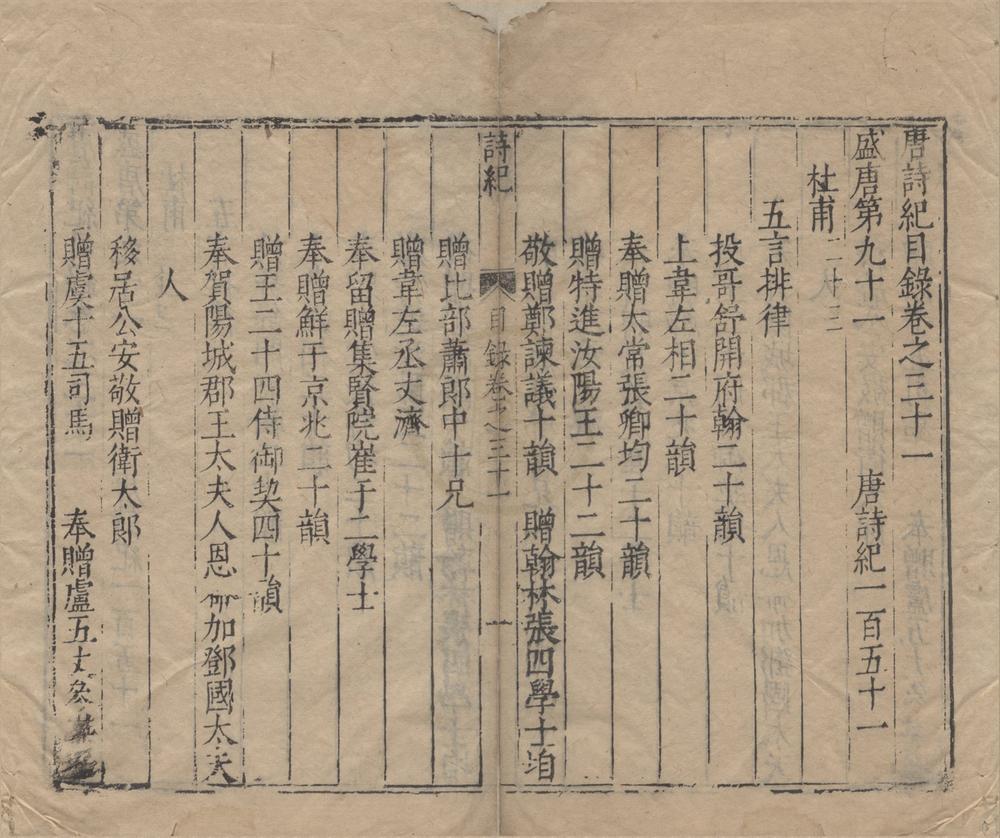 唐詩紀目錄卷之三十一
盛唐第九十一 唐詩紀一百五十一
杜甫二十三
五言排律
投哥舒開府翰二十韻
上韋左相二十韻
奉贈太常張卿均二十韻
贈特進汝陽王二十二韻
敬贈鄭諫議十韻 贈翰林張四學士垍
詩紀 目錄卷之三十一 一
贈比部蕭郎中十兄
贈韋左丞丈濟
奉留贈集賢院崔于二學士
奉贈鮮于京兆二十韻
贈王二十四侍御契四十韻
奉賀陽城郡王太夫人恩命加鄧國太夫
人
移居公安敬贈衛大郎
贈虞十五司馬 奉贈盧五丈參謀